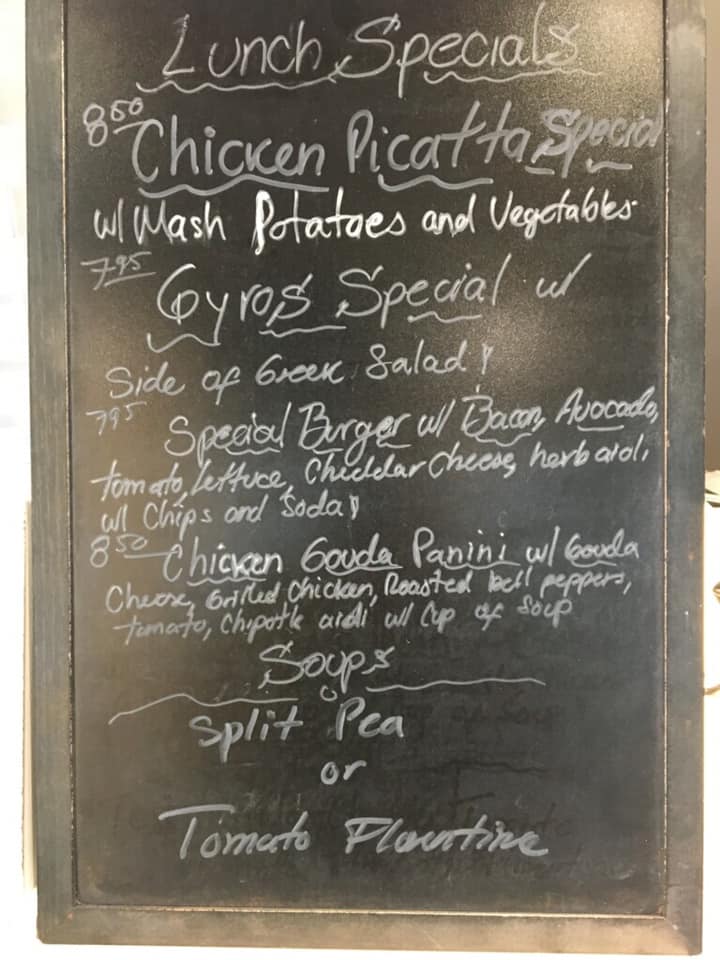 Lunch Specials
8.50 Chicken Picatta Special
w/ Mash Potatoes and Vegetables
7.95
Gyros Special w/
Side of Greek Salad!
7.95 Special Burger w/ Bacon, Avocado,
tomato, lettuce, Cheddar Cheese, herb aioli,
w/ Chips and Soda!
8.50 Chicken Gouda Panini w/ Gouda
Cheese, Grilled Chicken, Roasted bell peppers,
tomato, Chipotle aioli w/ Cup of Soup
Soups
Split Pea
or
Tomato Florentine